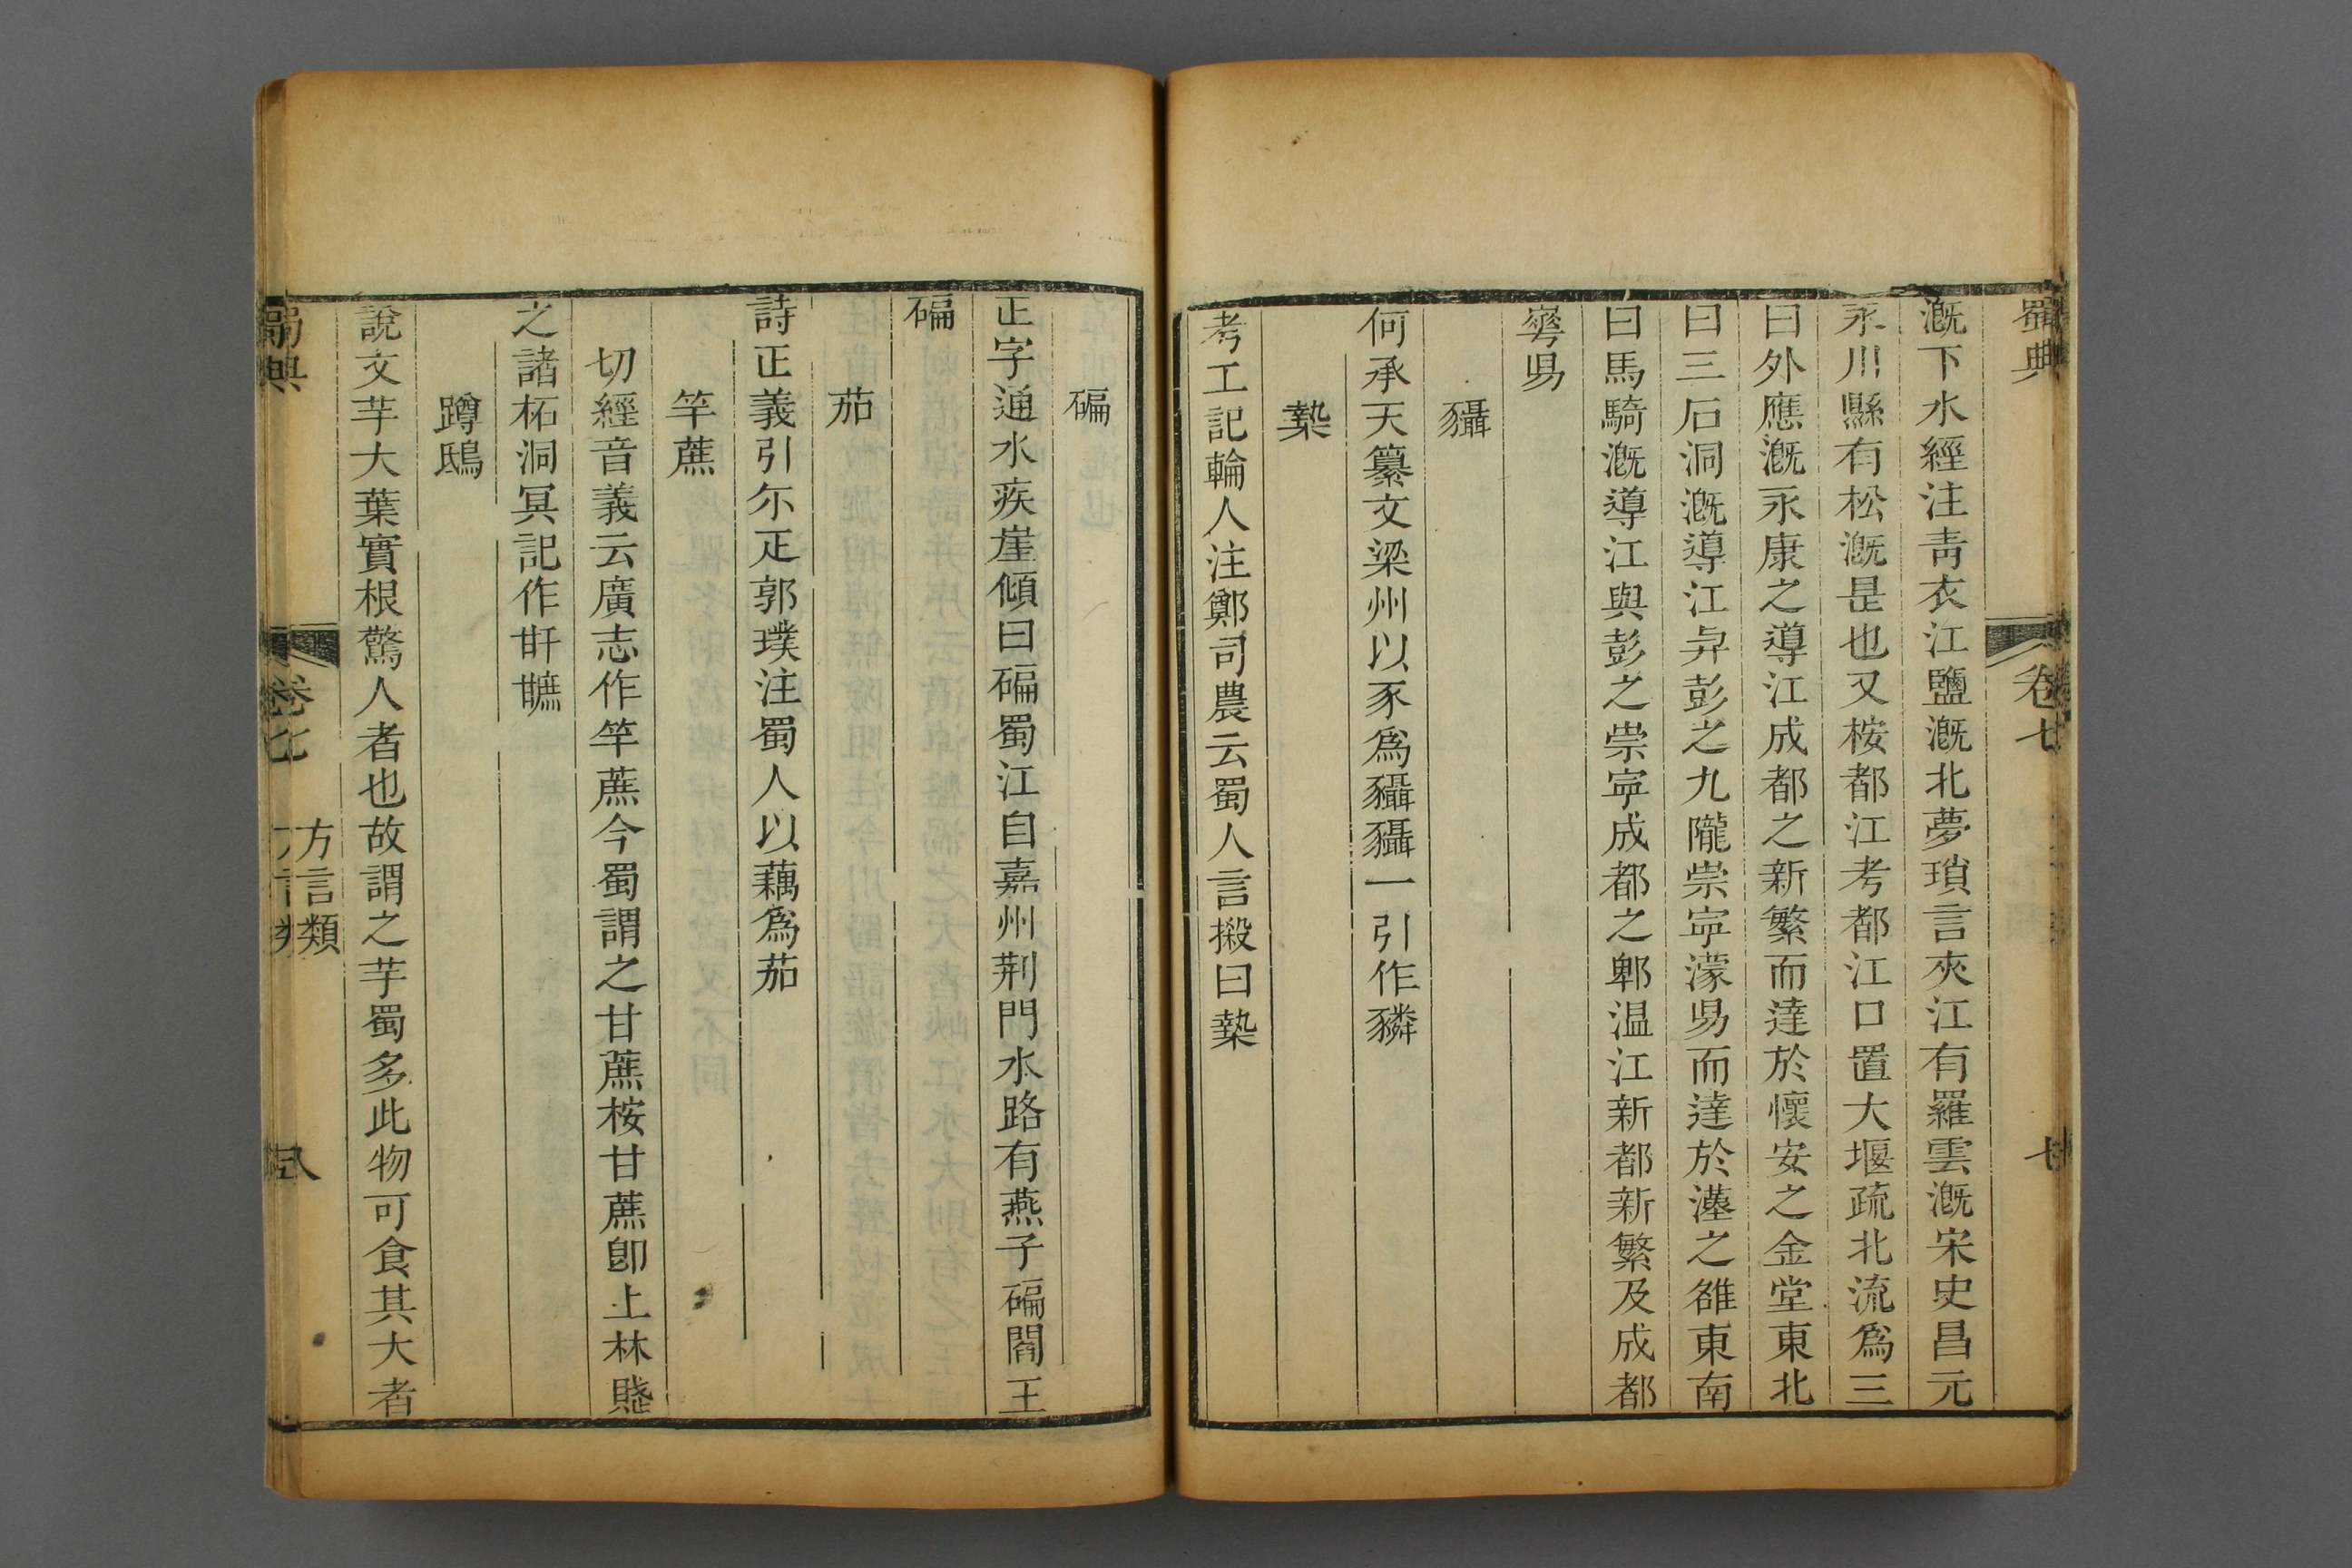 蜀典 卷七 七
漑下水經注靑衣江鹽漑北夢瑣言夾江有羅雲漑宋史昌元
永川縣有松漑是也又桉都江考都江口置大堰疏北流爲三
曰外應漑永康之導江成都之新繁而達於懷安之金堂東北
曰三石洞漑導江與彭之九隴崇寍濛昜而達於漢之雒東南
曰馬騎漑導江與彭之崇寍成都之郫温江新都新繁及成都
𠌶昜
䝕
何承天纂文梁州以豕爲䝕䝕一引作豯
槷
考工記輪人注鄭司農云蜀人言摋曰槷
碥
正字通水疾崖傾曰碥蜀江自嘉州荆門水路有燕子碥閻王
碥
茄
詩正義引尒疋郭璞注蜀人以藕爲茄
竿蔗
切經音義云廣志作竿蔗今蜀謂之甘蔗桉甘蔗卽上林賦
之諸柘洞冥記作
蹲鴟
說文芋大葉實根驚人者也故謂之芋蜀多此物可食其大者
蜀典 卷七 方言類 八